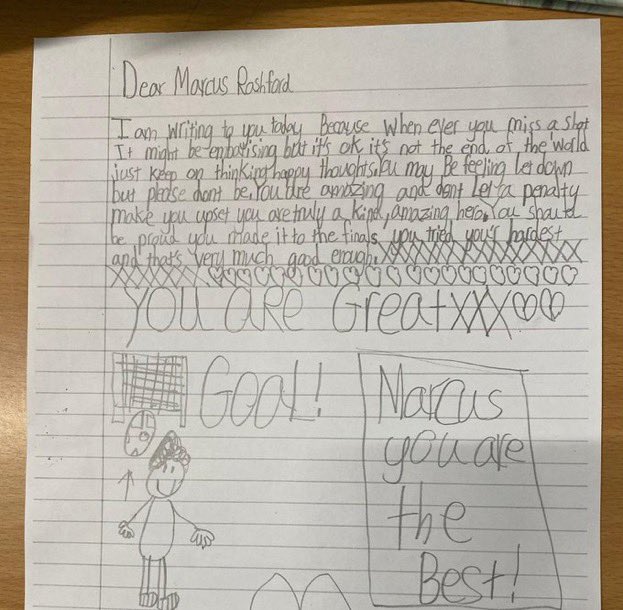 Dear Marcus Rashford
I am writing to you today Because When ever you miss a shot
It might be embarising but it's ok it's not the end of the world
just keep on thinking happy thoughts. You may Be feeling let down
but please dont be. You are amazing and dont Let a penalty
make you upset you are truly a kind, amazing hero. You should
be proud you made it to the finals you tried your's hardest
and that's very much good enough. XXXXXXXXXXXX
XXXXXX
you are GreatXXX
GOAL!
Marcus
you are
the
Best!